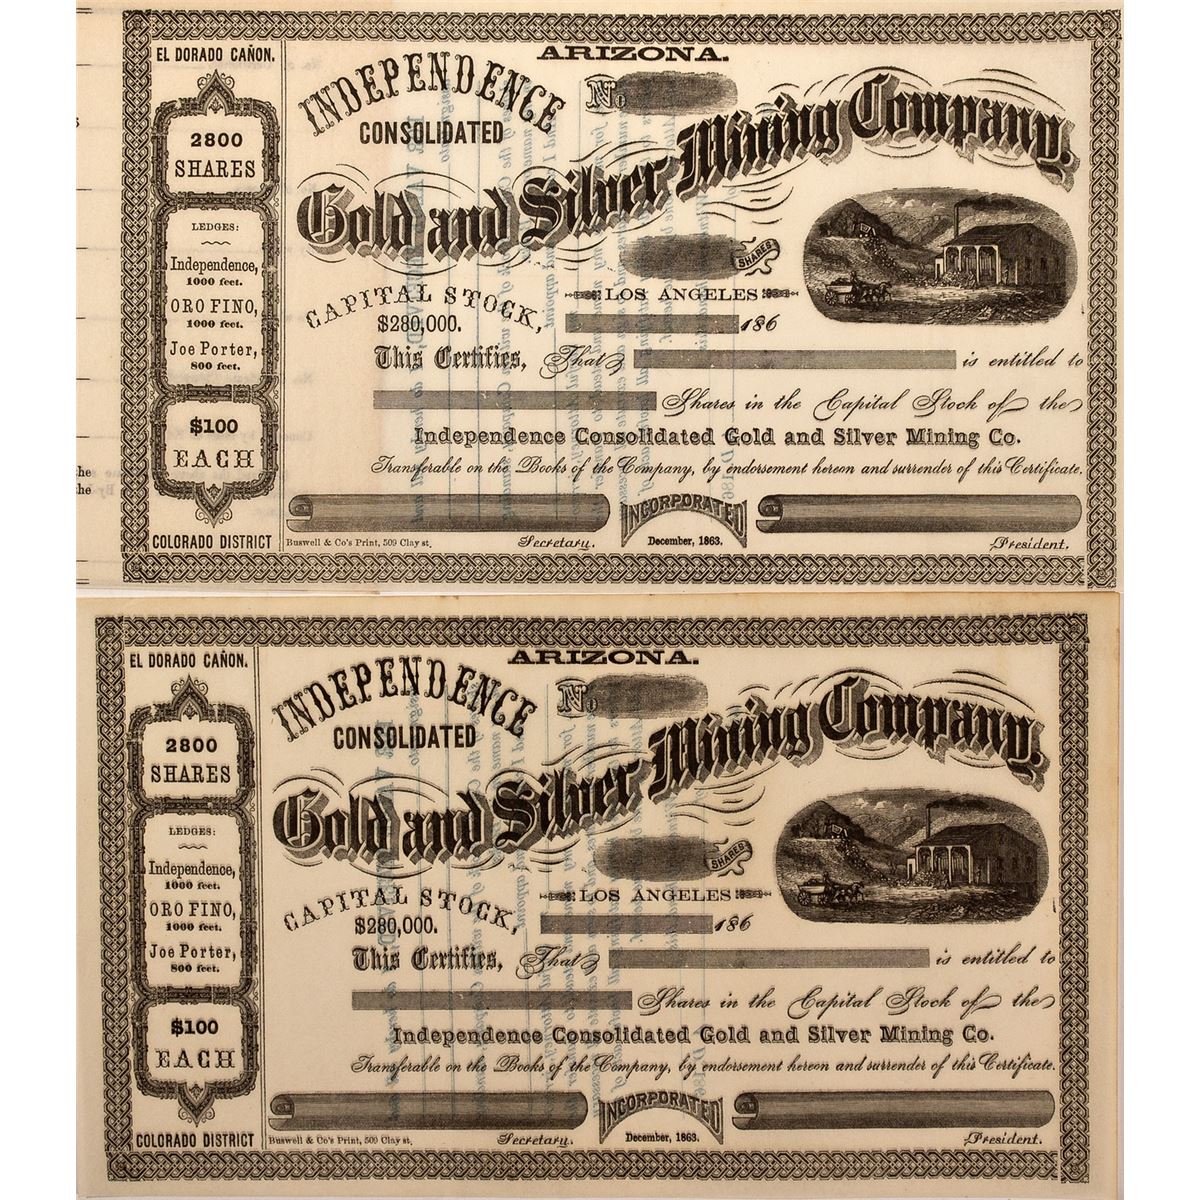 ARIZONA.
EL DORADO CAÑON.
2800
SHARES
LEDGES:
Independence,
1000 feet.
ORO FINO,
1000 feet.
Joe Porter,
800 feet.
$100
EACH
COLORADO DISTRICT
INDEPENDENCE
CONSOLIDATED
No
Gold and Silver Mining Company.
SHARES
CAPITAL STOCK,
$280,000.
LOS ANGELES
186
This Certifies, That is entitled to
Shares in the Capital Stock of the
Independence Consolidated Gold and Silver Mining Co.
Transferable on the Books of the Company, by endorsement hereon and surrender of this Certificate.
INCORPORATED
December, 1863.
Buswell & Co's Print, 509 Clay st.
Secretary.
President.
he
he
ARIZONA.
EL DORADO CAÑON.
2800
SHARES
LEDGES:
Independence,
1000 feet.
ORO FINO,
1000 feet.
Joe Porter,
800 feet.
$100
EACH
COLORADO DISTRICT
INDEPENDENCE
CONSOLIDATED
No
Gold and Silver Mining Company.
SHARES
CAPITAL STOCK,
$280,000.
LOS ANGELES
186
This Certifies, That is entitled to
Shares in the Capital Stock of the
Independence Consolidated Gold and Silver Mining Co.
Transferable on the Books of the Company, by endorsement hereon and surrender of this Certificate.
INCORPORATED
December, 1863.
Buswell & Co's Print, 509 Clay st.
Secretary.
President.